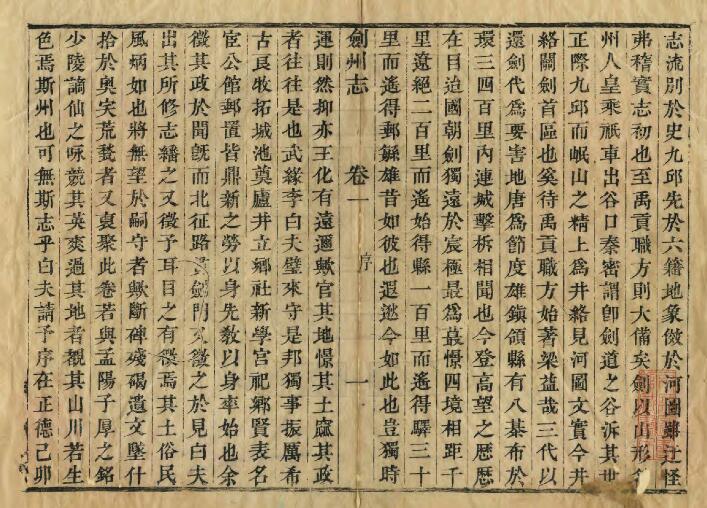 志流別於史九邱先於六籍地象倣於河圖雖迂怪
弗稽實志初也至禹貢職方則大備矣劍以山形
州人皇乘祇車出谷口秦密謂卽劍道之谷泝其世
正際九邱而岷山之精上爲井絡見河圖文實今井
絡關劍首區也奚待禹貢職方始著梁益哉三代以
還劍代爲要害地唐爲節度雄鎭領縣有八棊布於
環三四百里內連城擊柝相聞也今登高望之歷歷
在目迨國朝劍獨遠於宸極最爲蕞憬四境相距千
里遼絕二百里而遙始得縣一百里而遙得驛三十
里而遙得郵繇雄昔如彼也遐逖今如此也豈獨時
劍州志 卷一 序 一
運則然抑亦王化有遠邇歟官其地憬其土寙其政
者往往是也武緣李白夫璧來守是邦獨事振厲希
古良牧拓城池奠廬井立鄉社新學宮祀鄉賢表名
宦公館郵置皆鼎新之勞以身先敎以身率始也余
徵其政於聞旣而北征路劍門又徵之於見白夫
出其所修志繙之又徵予耳目之有徵焉其土俗民
風炳如也將無望於嗣守者歟斷碑殘碣遺文墜什
拾於奥突荒蓁者又裒聚此卷若與孟陽子厚之銘
少陵謫仙之咏競其英爽過其地者覩其山川若生
色焉斯州也可無斯志乎白夫請予序在正德己卯